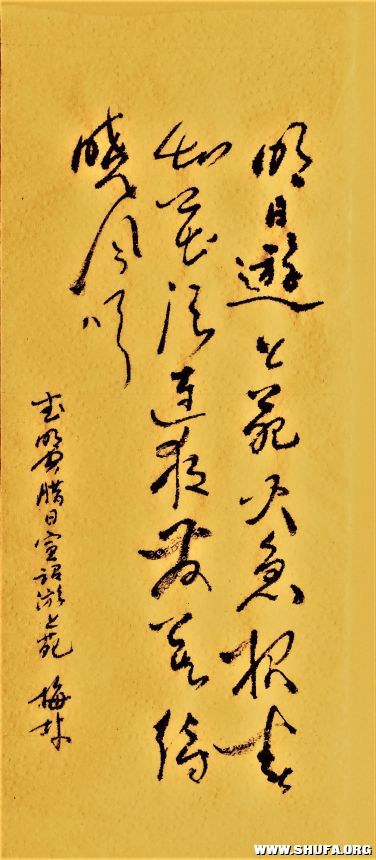 明日遊上苑火急报春
知花须连夜发莫待
晓风吹
武曌腊日宣詔游上苑 梅林
WWW.SHUFA.ORG